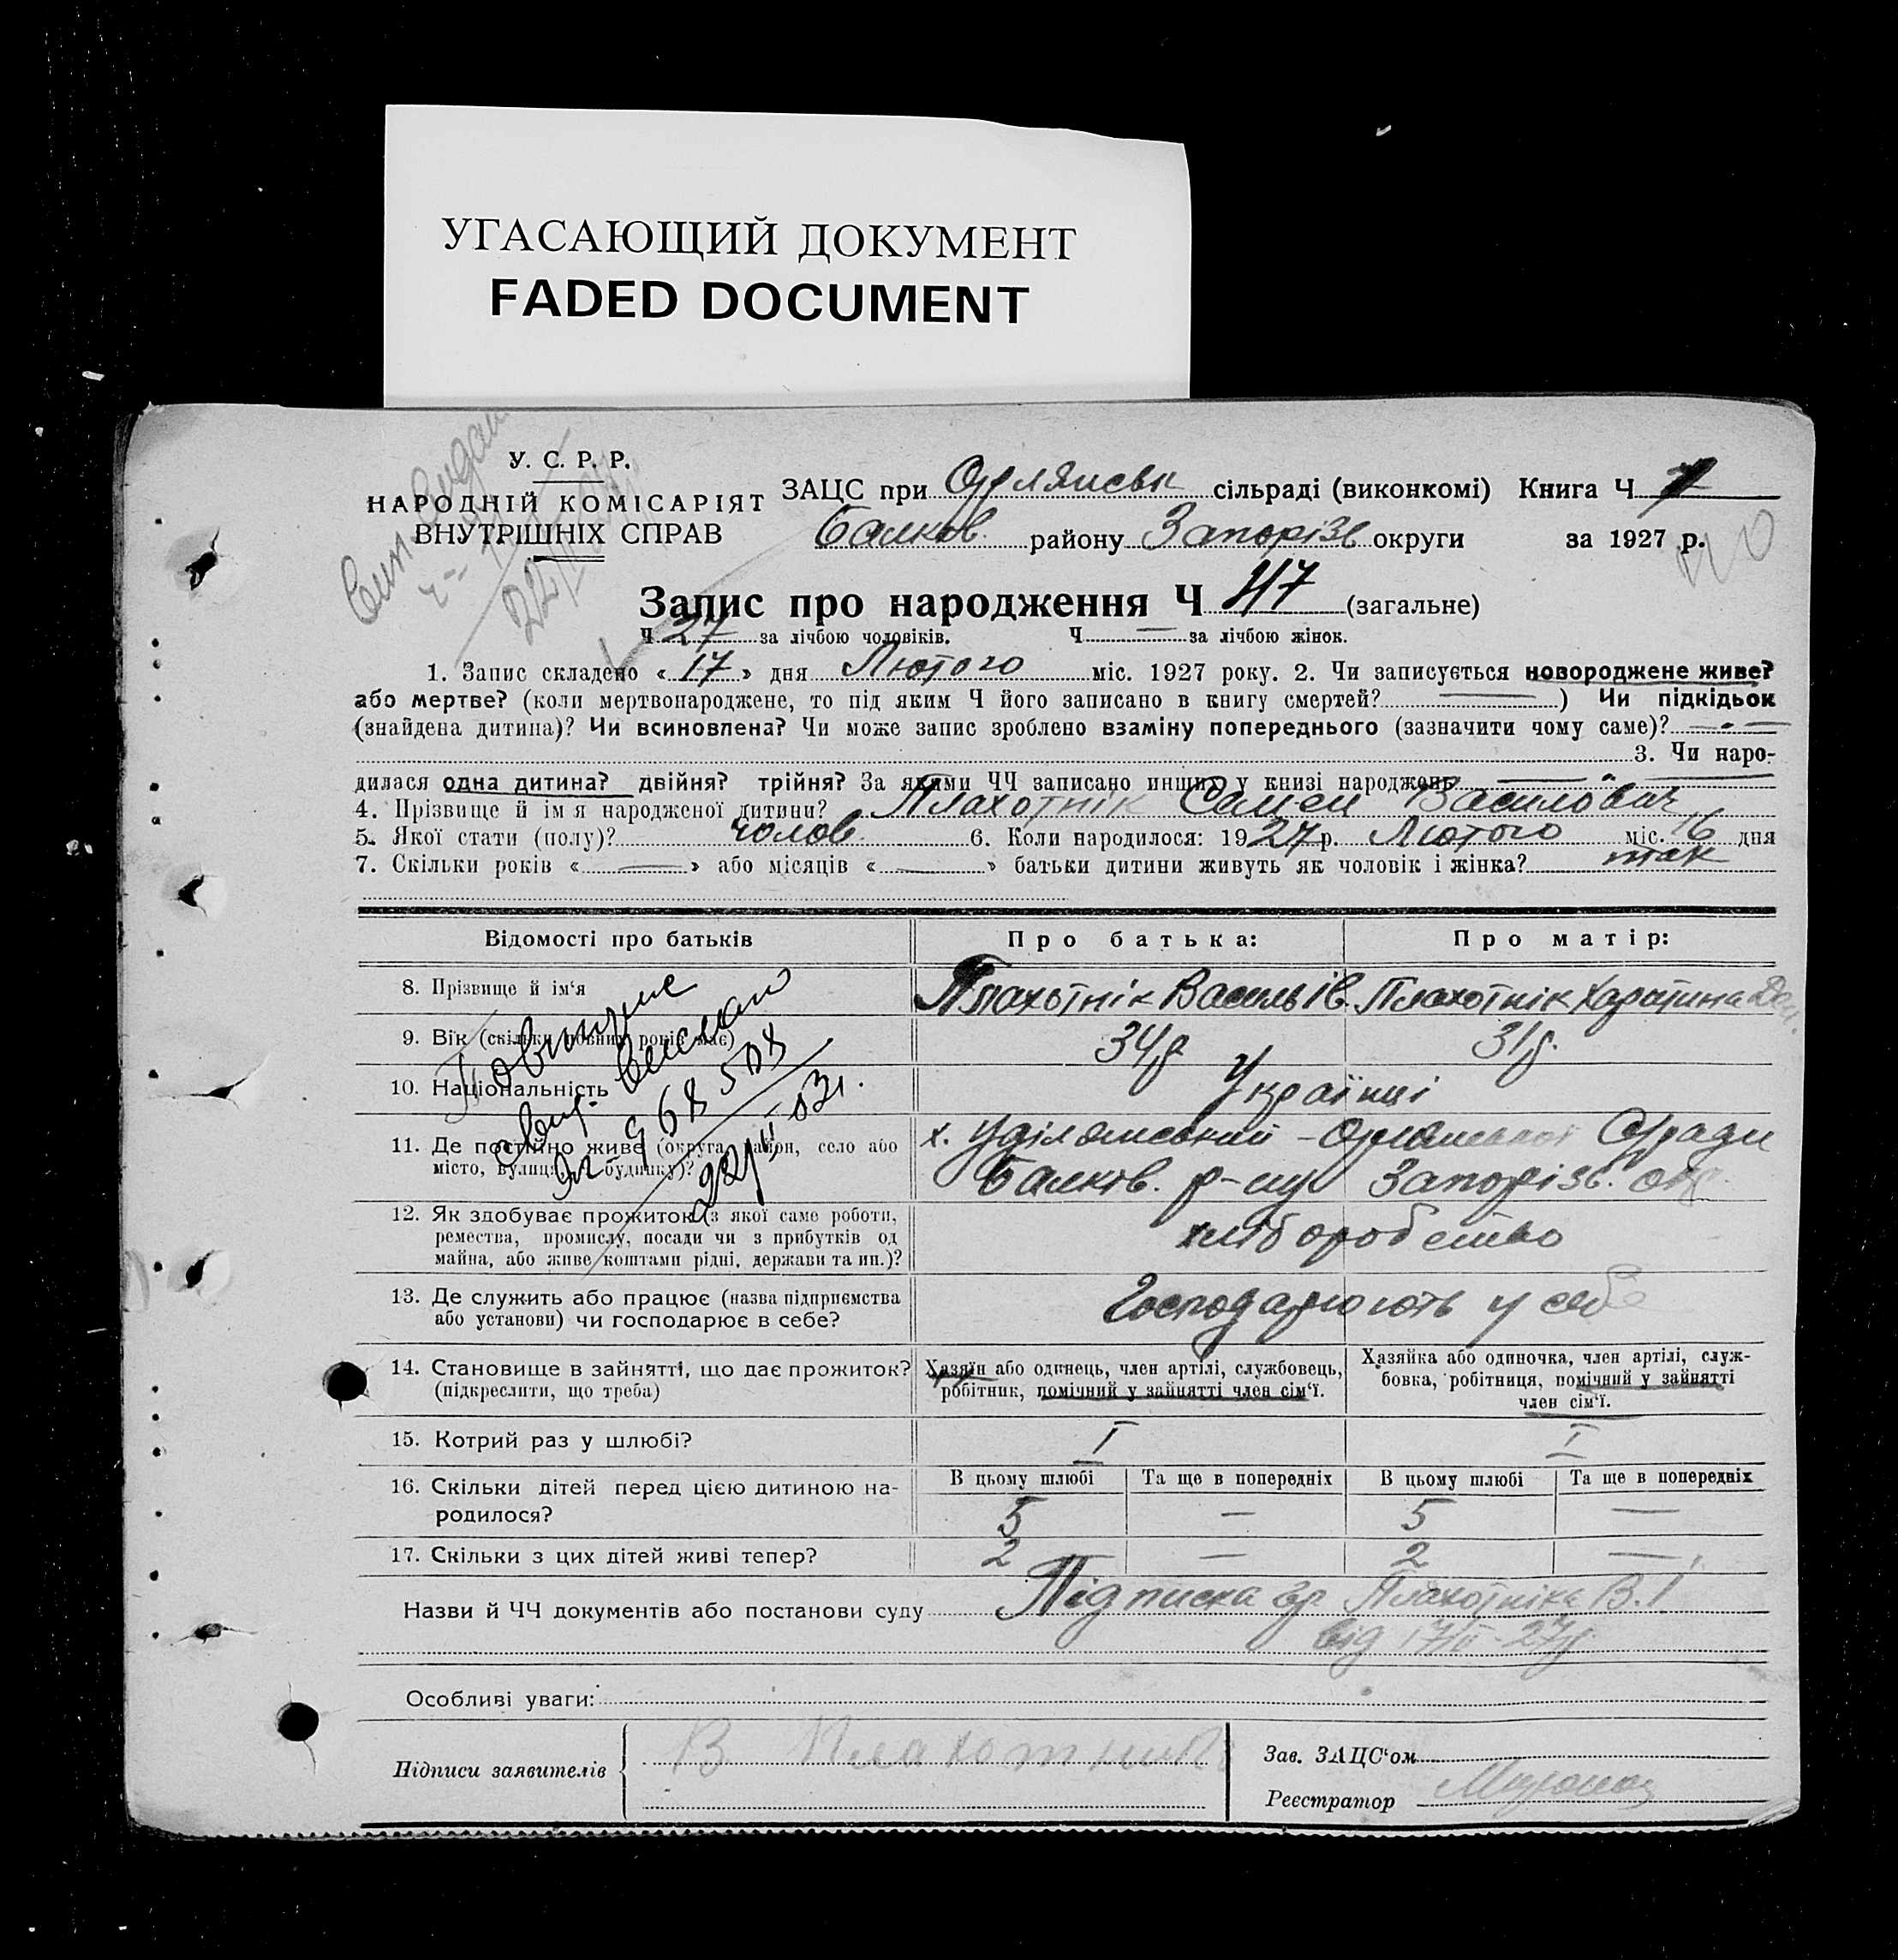 УГАСАЮЩИЙ ДОКУМЕНТ
FADED DOCUMENT
У. С. Р. Р.
НАРОДНІЙ КОМІСАРІЯТ
ВНУТРІШНІХ СПРАВ
ЗАЦС при Орлянськ сільраді (виконкомі) Книга Ч
Балков. району Запорізь округи за 1927 р.
Запис про народження Ч 47 (загальне)
Ч 27 за лічбою чоловіків. Ч — за лічбою жінок.
1. Запис складено « 17 » дня Лютого міс. 1927 року. 2. Чи записується новороджене живе?
або мертве? (коли мертвонароджене, то під яким Ч його записано в книгу смертей? ) Чи підкідьок
(знайдена дитина)? Чи всиновлена? Чи може запис зроблено взаміну попереднього (зазначити чому саме)?
3. Чи наро-
дилася одна дитина? двійня? трійня? За якими ЧЧ записано инших у книзі народжень
4. Прізвище й ім'я народженої дитини? Плахотнік Семен Васильович
5. Якої стати (полу)? чолов. 6. Коли народилося: 1927 р. Лютого міс. 16 дня
7. Скільки років « — » або місяців « — » батьки дитини живуть як чоловік і жінка? так
Відомості про батьків Про батька: Про матір:
8. Прізвище й ім'я Плахотнік Василь Ів. Плахотнік Харитина
9. Вік (скільки повних років має) 34р. 31р.
10. Національність Українці
11. Де постійно живе (округа, район, село або х. Орлянської С/ради
місто, вулиця, будинку)? Балков. р-ну Запорізь. окр.
12. Як здобуває прожиток (з якої саме роботи,
ремества, промислу, посади чи з прибутків од хліборобство
майна, або живе коштами рідні, держави та ин.)?
13. Де служить або працює (назва підприємства Господарюють у себе
або установи) чи господарює в себе?
14. Становище в зайнятті, що дає прожиток? Хазяїн або одинець, член артілі, службовець, Хазяйка або одиночка, член артілі, служ-
(підкреслити, що треба) робітник, помічний у зайнятті член сім'ї. бовка, робітниця, помічний у зайнятті
член сім'ї.
15. Котрий раз у шлюбі? I I
16. Скільки дітей перед цією дитиною на- В цьому шлюбі Та ще в попередніх В цьому шлюбі Та ще в попередніх
родилося? 5 — 5 —
17. Скільки з цих дітей живі тепер? 2 — 2 —
Назви й ЧЧ документів або постанови суду Підписка гр. Плахотніка В. І.
від 17/II-27р.
Особливі уваги:
Підписи заявителів В Плахотник
Зав. ЗАЦС'ом
Реєстратор